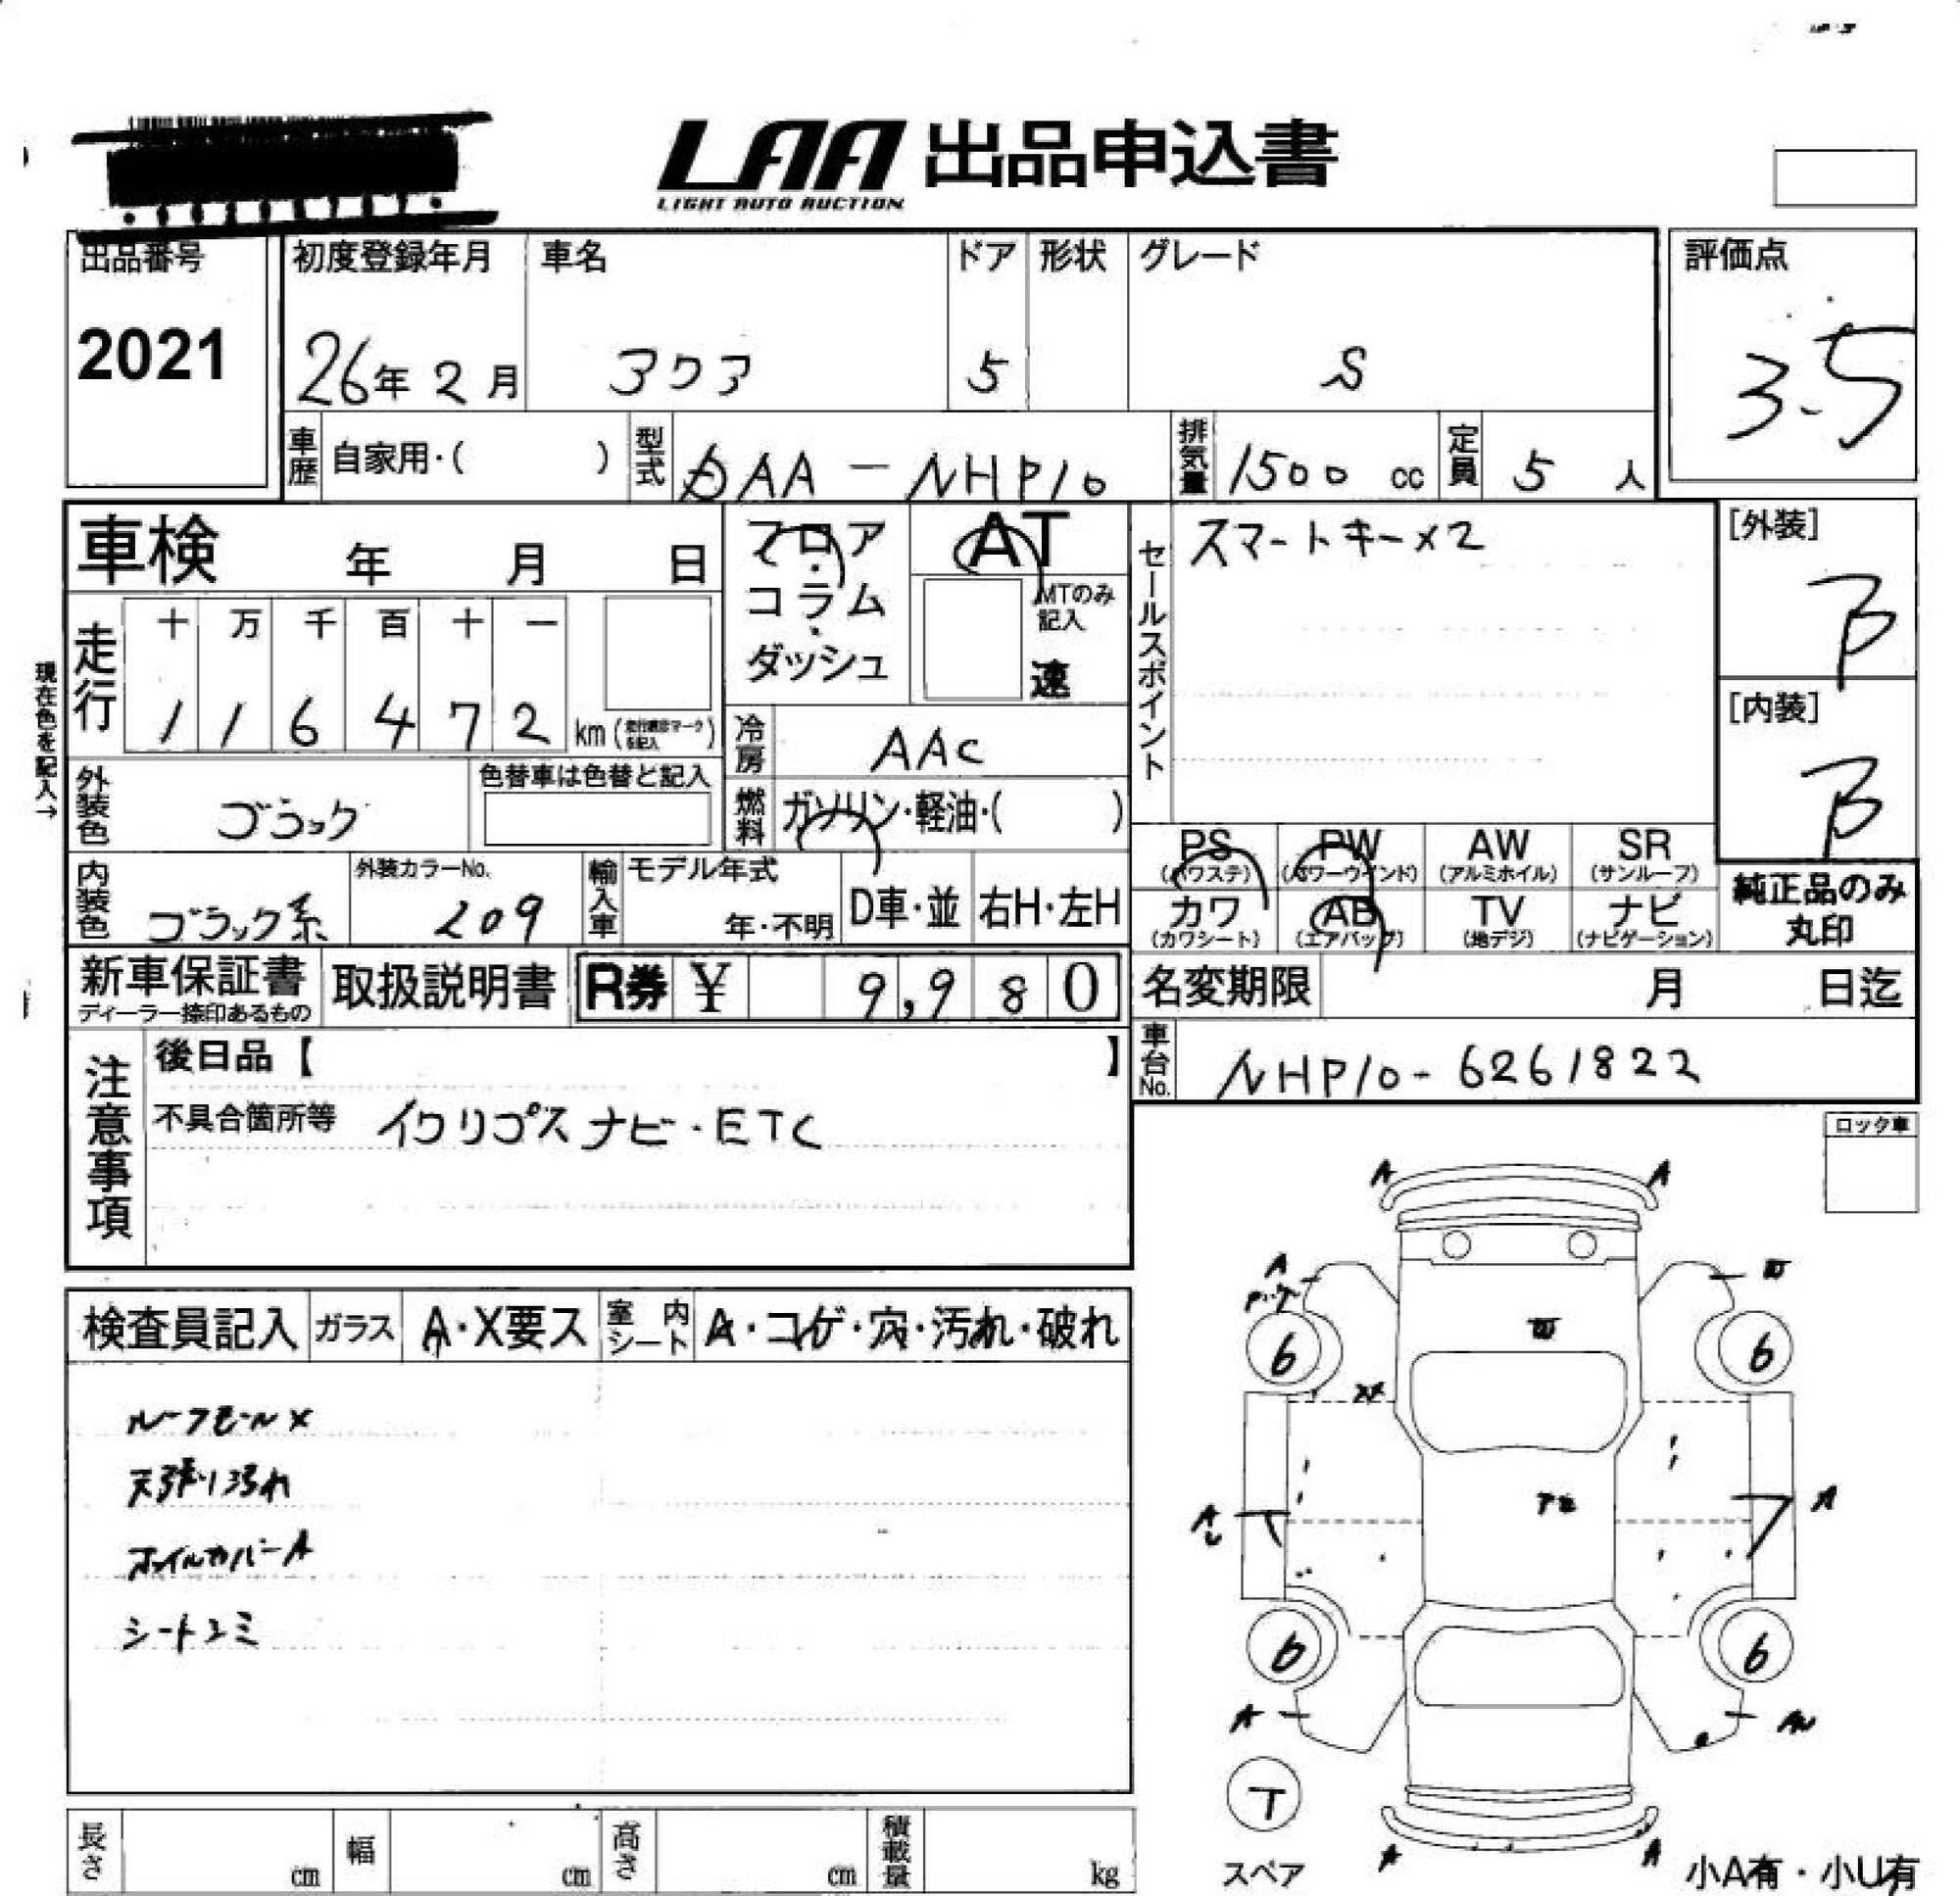 LAA 出品申込書
LIGHT AUTO AUCTION
出品番号 初度登録年月 車名 ドア 形状 グレード 評価点
2021 26年 2月 アクア 5 S 3.5
車歴 自家用・( ) 型式 DAA-NHP10 排気量 1500 cc 定員 5 人
車検 年 月 日 フロア・コラム・ダッシュ AT
MTのみ記入 速
セールスポイント スマートキー×2
[外装] B
[内装] B
走行 十 万 千 百 十 一
1 1 6 4 7 2 km
現在色を記入→
冷房 AAC
外装色 ブラック 色替車は色替と記入
燃料 ガソリン・軽油・( )
PS (パワステ) PW (パワーウインド) AW (アルミホイル) SR (サンルーフ)
カワ (カワシート) AB (エアバッグ) TV (地デジ) ナビ (ナビゲーション)
純正品のみ丸印
内装色 ブラック系 外装カラーNo. 209 輸入車 モデル年式 年・不明 D車・並 右H・左H
新車保証書 ディーラー捺印あるもの 取扱説明書 R券 ¥ 9,980
名変期限 月 日迄
車台No. NHP10-6261822
注意事項 後日品【 】
不具合箇所等 イクリプスナビ・ETC
ロック車
検査員記入 ガラス A・X要ス 室内シート A・コゲ・穴・汚れ・破れ
ルーフモールX
天張り汚れ
ホイルカバーA
シートシミ
A A
A
6 6
A A
6 6
A
T
スペア
A A
小A有・小U有
長さ cm 幅 cm 高さ cm 積載量 kg